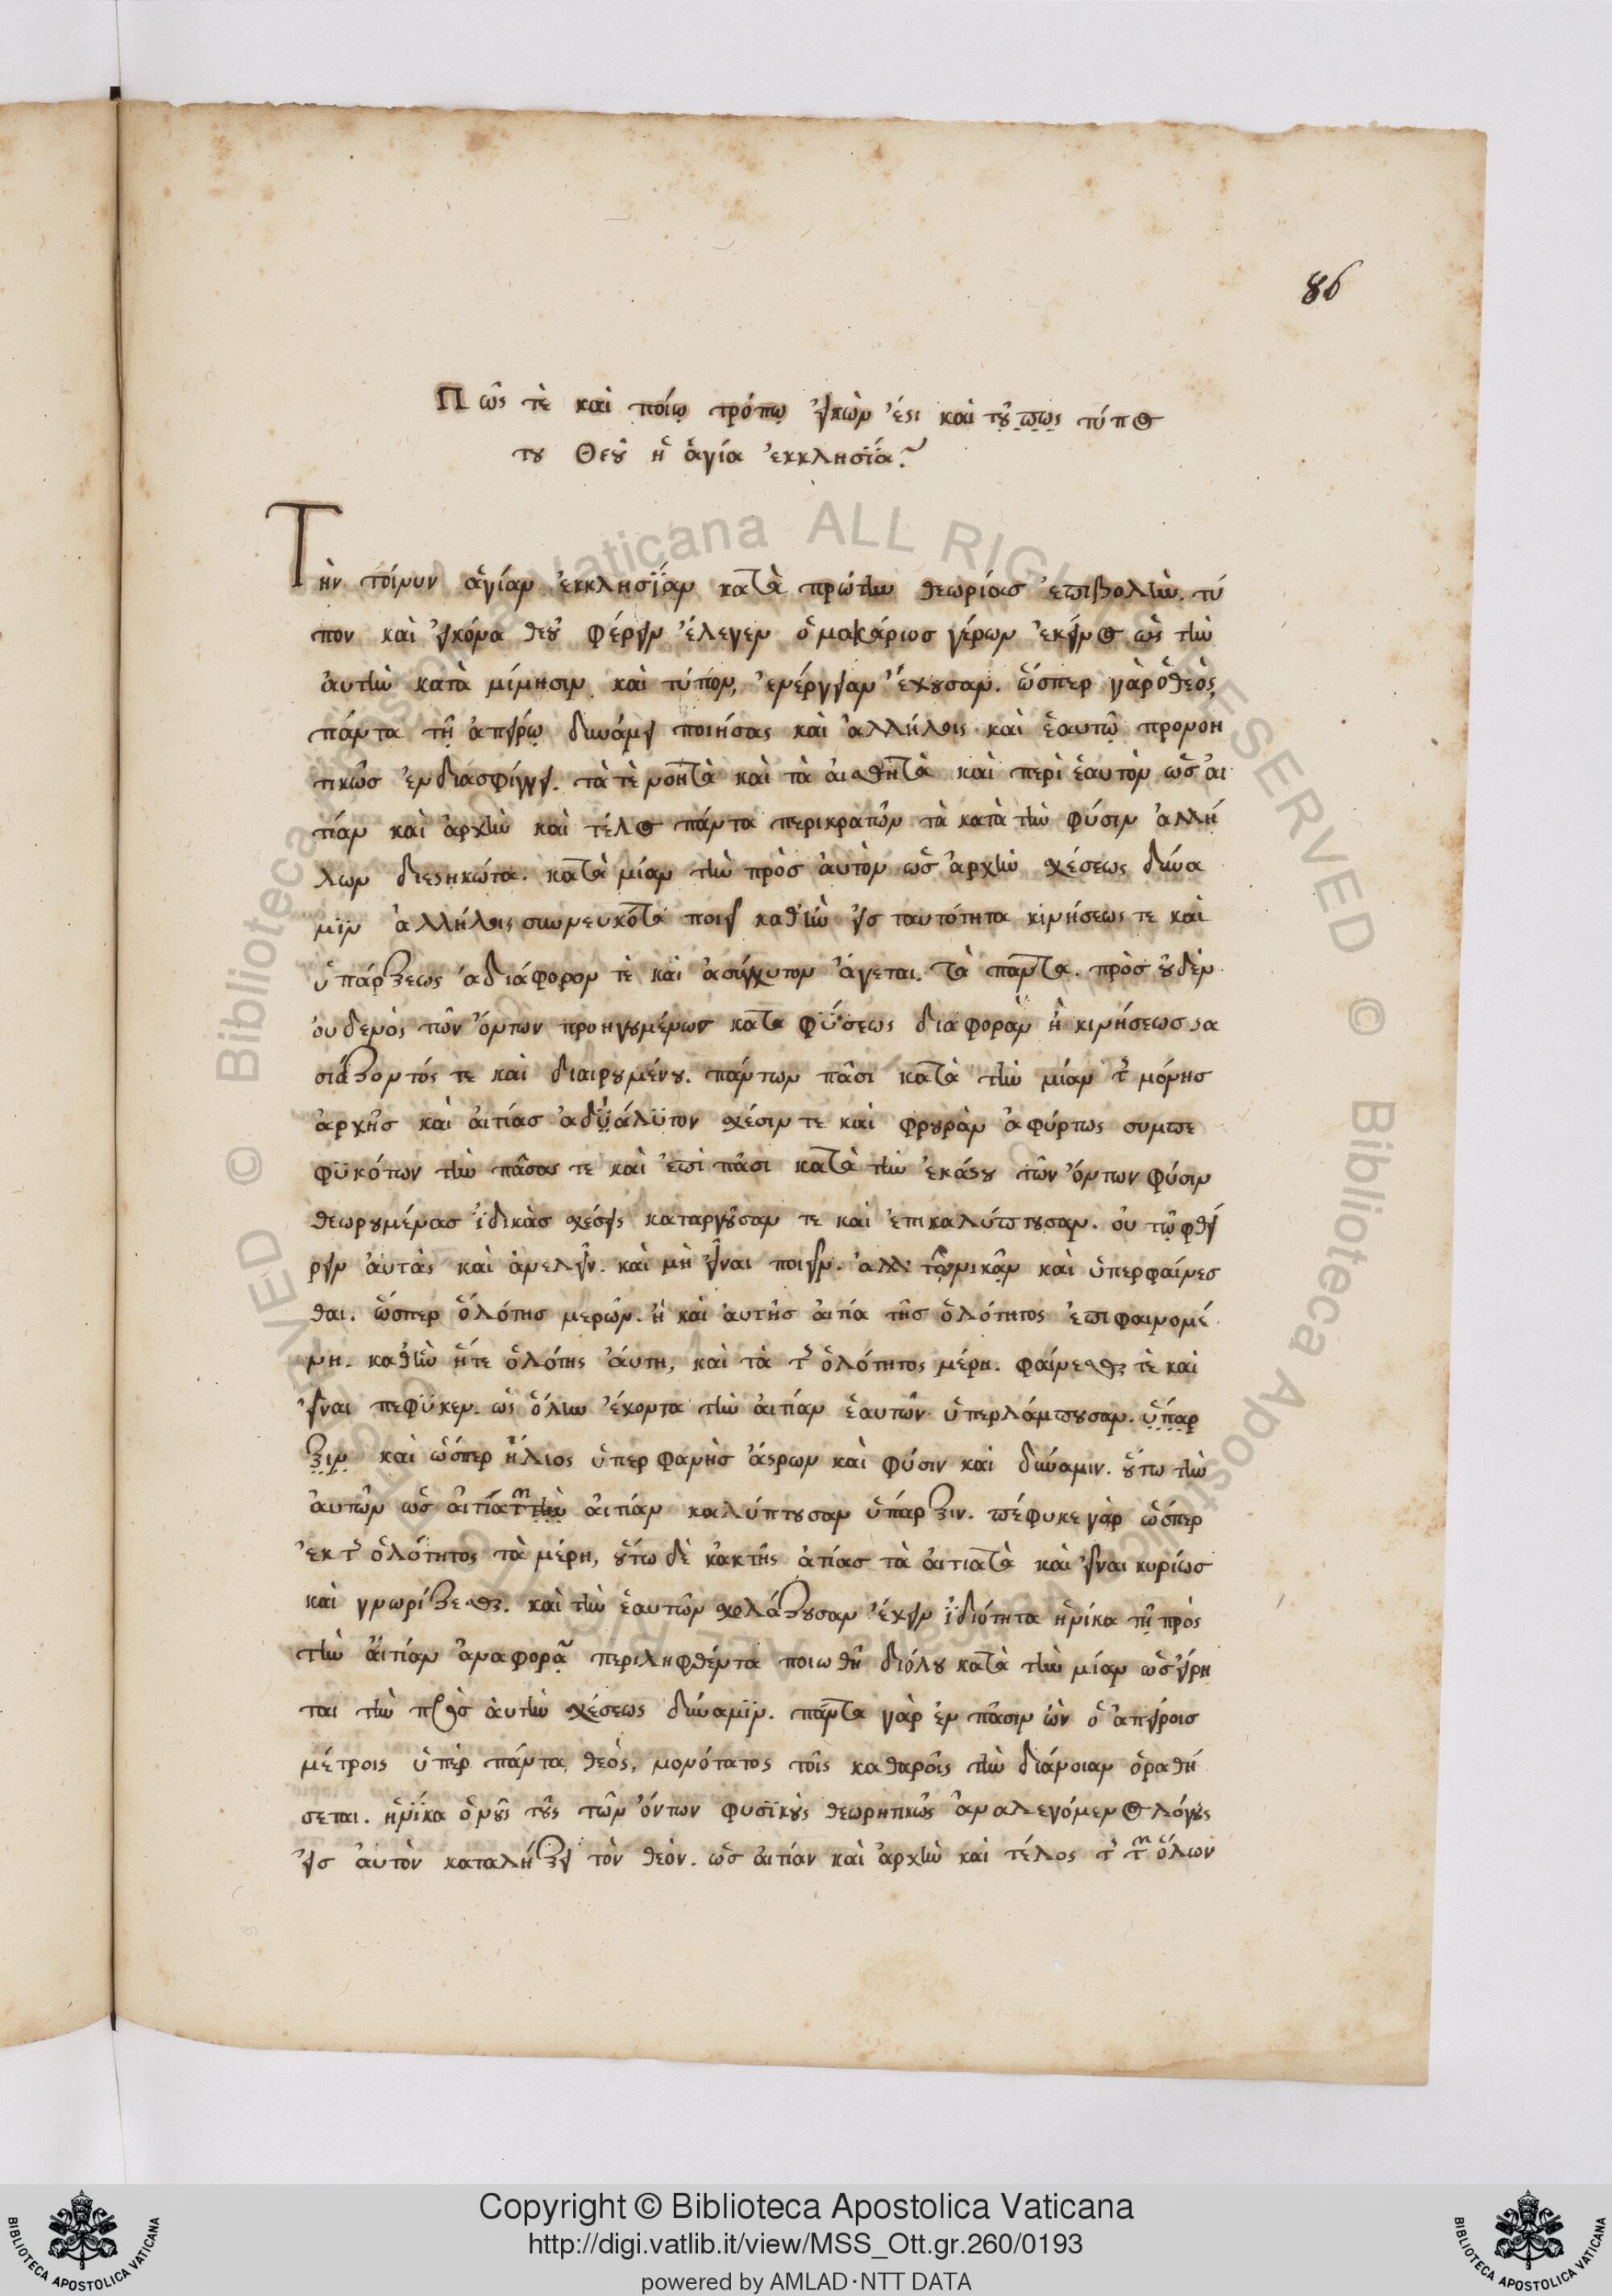 86
Πῶς τὲ καὶ ποίῳ τρόπῳ εἰκὼν ἐστι καὶ τοῦπως τύπος
του Θεοῦ ἡ ἁγία ἐκκλησΐα;
Τὴν τοίνυν ἁγίαν ἐκκλησΐαν κατὰ πρώτην θεωρίας ἐπιβολὴν. τύ
πον καὶ εἰκόνα θεοῦ φέρειν ἔλεγεν ὁ μακάριος γέρων ἐκεῖνος ὡς τὴν
ἀυτὴν κατὰ μίμησιν καὶ τύπον, ἐνέργειαν ἔχουσαν. ὥσπερ γὰρ ὁ θεὸς
πάντα τῇ ἀπείρῳ δυνάμει ποιήσας καὶ ἀλλήλοις καὶ ἑαυτῷ προνοη
τικῶς ἐνδιασφίγγει. τὰ τὲ νοητὰ καὶ τὰ ἀισθητὰ καὶ περὶ ἑαυτὸν ὡς ἀι
τίαν καὶ ἀρχὴν καὶ τέλος πάντα περικρατῶν τὰ κατὰ τὴν φύσιν ἀλλή
λων διεστηκώτα. κατὰ μίαν τὴν πρὸς ἀυτὸν ὡς ἀρχὴν σχέσεως δύνα
μϊν ἀλλήλοις συννευκότα ποιεῖ καθ' ἣν εἰς ταυτότητα κινήσεως τε καὶ
ὑπάρξεως ἀδιάφορον τὲ καὶ ἀσύγχυτον ἄγεται. τὰ πάντα. πρὸς οὐδὲν
ὀυδενὸς τῶν ὄντων προηγουμένως κατα φΰσεως διαφορὰν ἢ κινήσεως στα
σιάζοντός τε καὶ διαιρουμένου. πάντων πᾶσι κατὰ τὴν μίαν τῆς μόνης
ἀρχῆς καὶ ἀιτίας ἀδϋάλϋτον σχέσιν τε καὶ φρουρὰν ἀφύρτως συμπε
φϋκότων τὴν πᾶσας τε καὶ ἐπὶ πᾶσι κατὰ τὴν ἑκάστου τῶν ὄντων φύσιν
θεωρουμένας ἰδικὰς σχέσεις καταργοῦσαν τε καὶ ἐπικαλύπτουσαν. ὀυ τῷ φθεί
ρειν ἀυτὰς καὶ ἀμελεῖν. καὶ μὴ εἶναι ποιεῖν. ἀλλὰ τῷ νικᾶν καὶ ὑπερφαίνεσ
θαι. ὥσπερ ὁλότης μερῶν. ἢ καὶ ἀυτῆς ἀιτία τῆς ὁλότητος ἐπιφαινομέ
νη. καθ' ἣν ἥτε ὁλότης ἀύτη, καὶ τὰ τῆς ὁλότητος μέρη. φαίνεσθαι τὲ καὶ
εἶναι πεφϋκεν. ὡς ὅλην ἔχοντα τὴν ἀιτίαν ἑαυτῶν ὑπερλάμπουσαν. ὕπαρ
ξιν καὶ ὥσπερ ἥλιος ὑπερ φανὴς ἄστρων καὶ φύσιν καὶ δύναμιν. οὕτω τὴν
ἀυτῶν ὡς ἀιτίατῶν τὴν ἀιτίαν καλύπτουσαν ὑπάρξιν. πέφυκε γὰρ ὥσπερ
ἐκ τῆς ὁλότητος τὰ μέρη, οὕτω δὲ κἀκ τῆς ἀτίας τὰ ἀιτιατὰ καὶ εἶναι κυρίως
καὶ γνωρίζεσθαι. καὶ τὴν ἑαυτῶν σχολάζουσαν ἔχειν ἰδιότητα ἡνίκα τῇ πρὸς
τὴν ἀιτίαν ἀναφορᾷ περιληφθέντα ποιωθῇ διόλου κατὰ τὴν μίαν ὡς εἴρη
ται τὴν πρὸς ἀυτὴν σχέσεως δύναμϊν. πάντα γὰρ ἐν πᾶσιν ὢν ὁ ἀπείροις
μέτροις ὑπὲρ πάντα θεὸς, μονότατος τοῖς καθαροῖς τὴν διάνοιαν ὁραθή
σεται. ἡνΐκα ὁ νοῦς τοὺς τῶν ὄντων φυσϊκοὺς θεωρητικῶς ἀναλεγόμενος λόγους
εἰς ἀυτὸν καταλήξει τὸν θεὸν. ὡς ἀιτίαν καὶ ἀρχὴν καὶ τέλος τῆς τῶν ὅλων
Copyright © Biblioteca Apostolica Vaticana
http://digi.vatlib.it/view/MSS_Ott.gr.260/0193
powered by AMLAD·NTT DATA